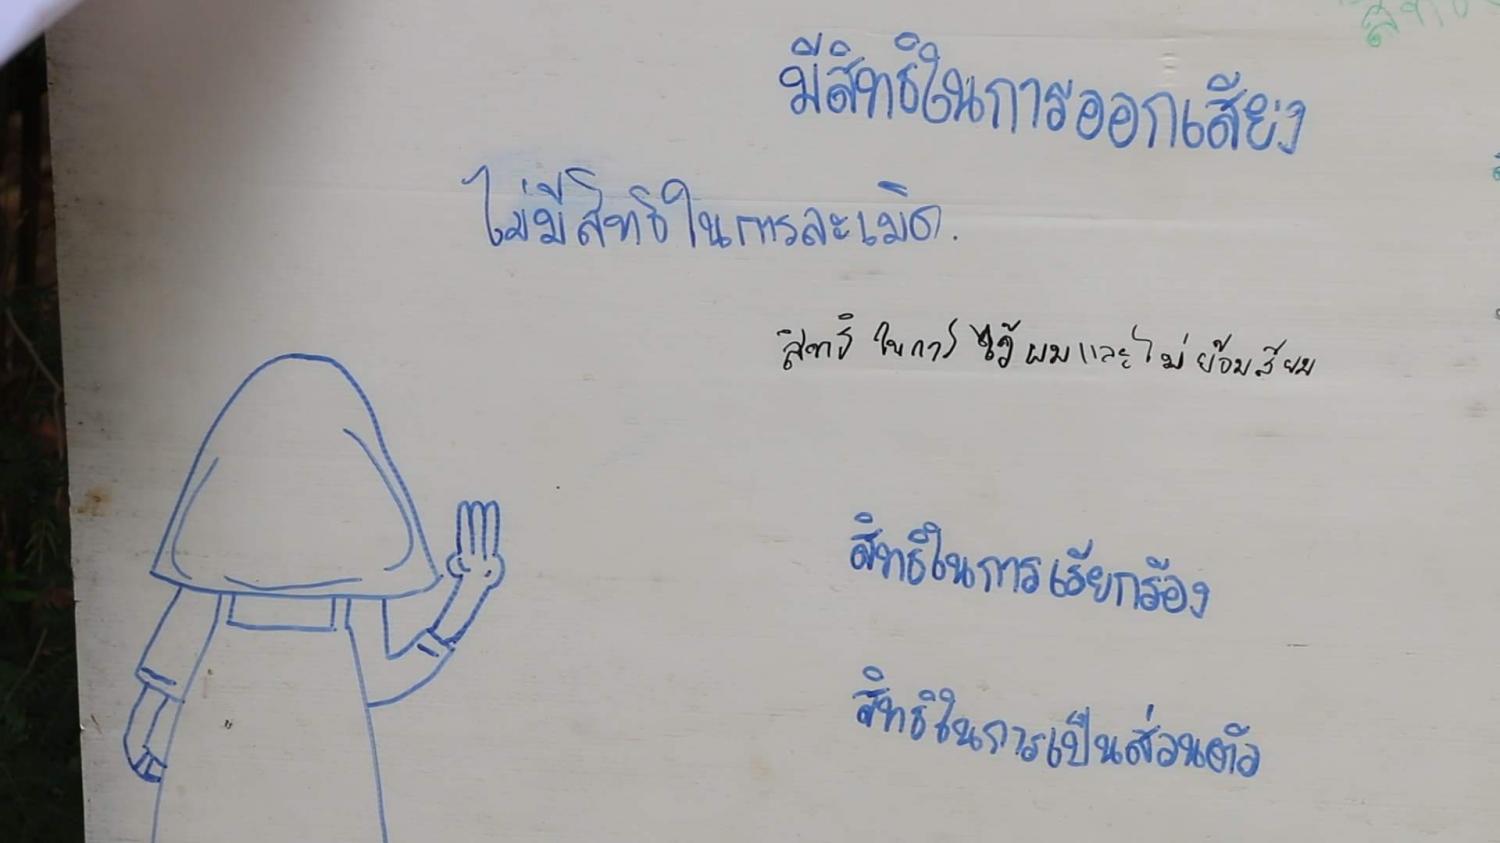 มีสิทธิในการออกเสียง
ไม่มีสิทธิในการละเมิด.
สิทธิ ในการ ไว้ผมและไม่ย้อมสีผม
สิทธิในการเรียกร้อง
สิทธิในการเป็นส่วนตัว